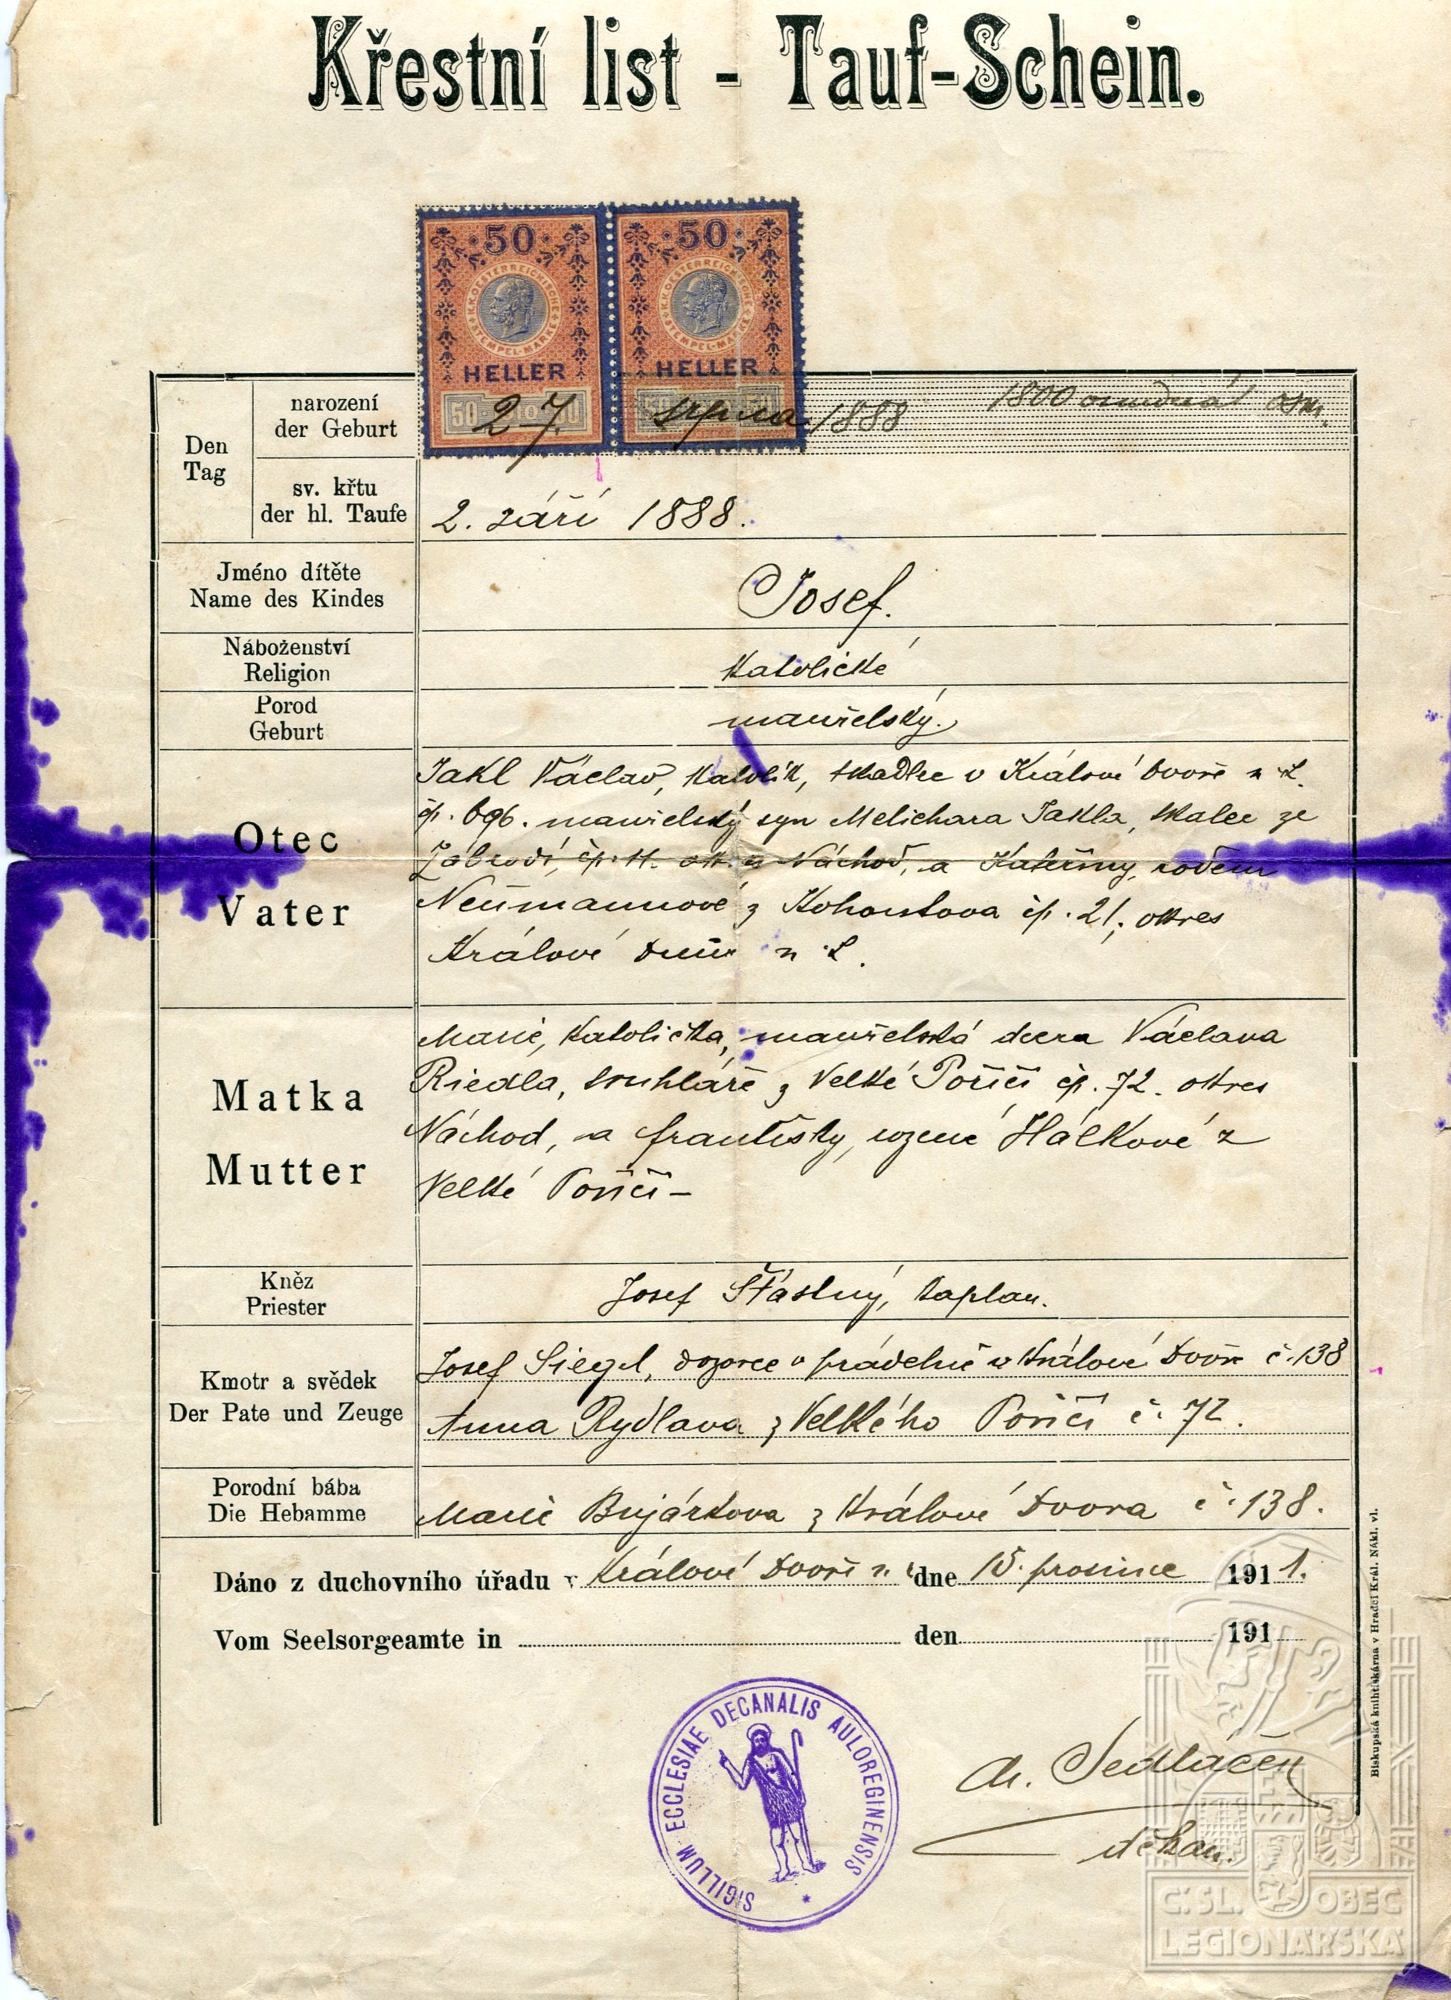 Křestní list - Tauf-Schein.
50 50
K.K. OESTERREICHISCHE STEMPEL-MARKE K.K. OESTERREICHISCHE STEMPEL-MARKE
HELLER HELLER
Den
Tag
narození
der Geburt
27. srpna 1888 1800 osmdesát osm.
sv. křtu
der hl. Taufe
2. září 1888.
Jméno dítěte
Name des Kindes
Josef.
Náboženství
Religion
katolické
Porod
Geburt
manželský.
Otec
Vater
Jakl Václav, katolík, tkadlec v Králové Dvoře n. L.
čp. 696. manželský syn Melichara Jakla, tkalce ze
Zábrodí, čp. 11. okr. Náchod, a Kateřiny, rodem
Neumannové z Kohoutova čp. 21; okres
Králové Dvůr n. L.
Matka
Mutter
Marie, katolička, manželská dcera Václava
Riedla, truhláře z Velké Poříčí čp. 72. okres
Náchod, a Františky, rozené Hálkové z
Velké Poříčí -
Kněz
Priester
Josef Šťastný, kaplan.
Kmotr a svědek
Der Pate und Zeuge
Josef Siegel, dozorce v přádelně v Králové Dvoře č. 138
Anna Rydlova z Velkého Poříčí č. 72.
Porodní bába
Die Hebamme
Marie z Králové Dvora č. 138.
Dáno z duchovního úřadu v Králové Dvoře n. dne 15. prosince 1911.
Vom Seelsorgeamte in den 191
SIGILLUM ECCLESIAE DECANALIS AULOREGINENSIS
Sedláček
děkan.
Biskupská knihtiskárna v Hradci Král. Nákl. vl.
Č. SL. OBEC
LEGIONÁŘSKÁ